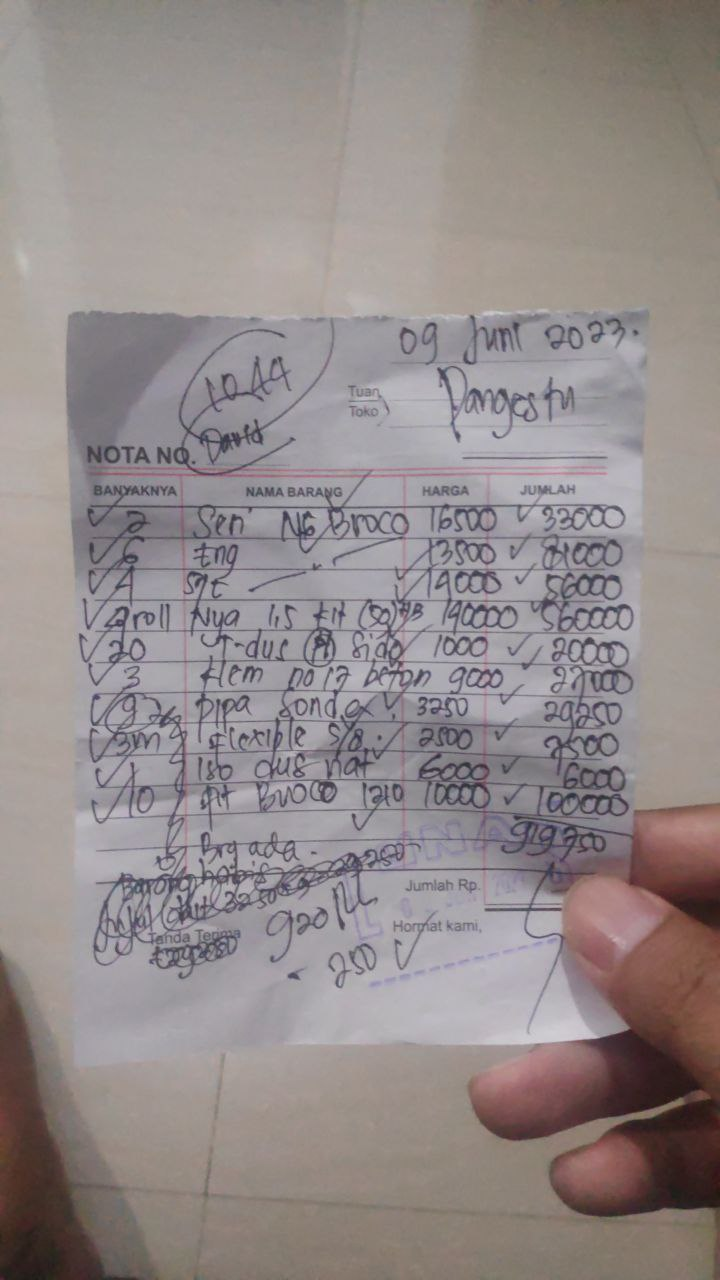 09 Juni 2023.
1044
Tuan
Toko
Pangestu
NOTA NO. David
BANYAKNYA NAMA BARANG HARGA JUMLAH
2 Seri NG Broco 16500 33000
6 Eng 13500 81000
4 14000 56000
4 roll Nya 1,5 (50) 560000
20 T-dus Sido 1000 20000
3 Klem no 17 beton 9000 27000
9 pipa 3250 29250
3m Flexible 5/8 2500 7500
1 dus nat 6000 6000
10 Broco 10000 100000
919750
Brg ada.
Barang habis
3250
Jumlah Rp.
Tanda Terima
920
Hormat kami,
250